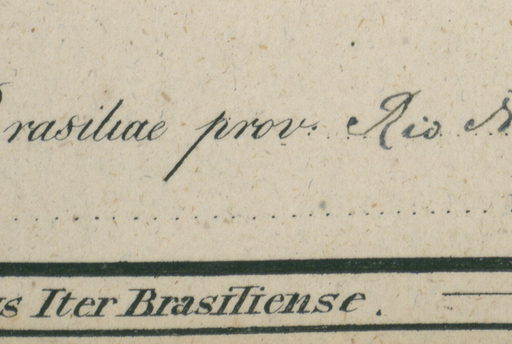 Brasiliae prov. Rio N
s Iter Brasiliense.